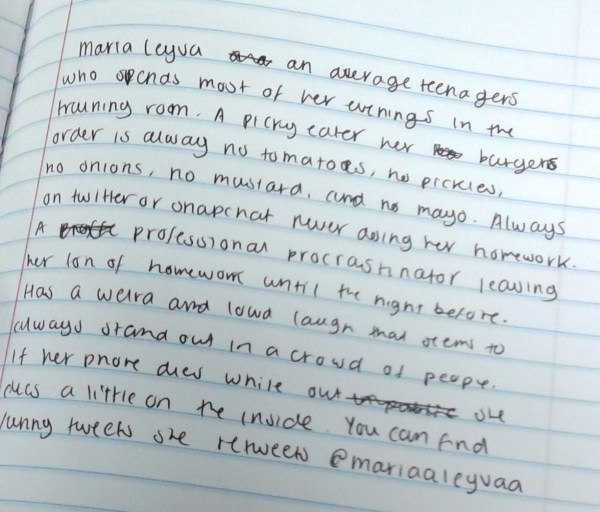 Maria Leyva an average teenagers
who spends most of her evenings in the
training room. A picky eater her burgers
order is alway no tomatoes, no pickles,
no onions, no mustard, and no mayo. Always
on twitter or snapchat never doing her homework.
A professional procrastinator leaving
her ton of homework until the night before.
Has a weird and loud laugh that seems to
always stand out in a crowd of people.
If her phone dies while out she
dies a little on the inside. You can find
funny tweets she retweets @mariaaleyvaa